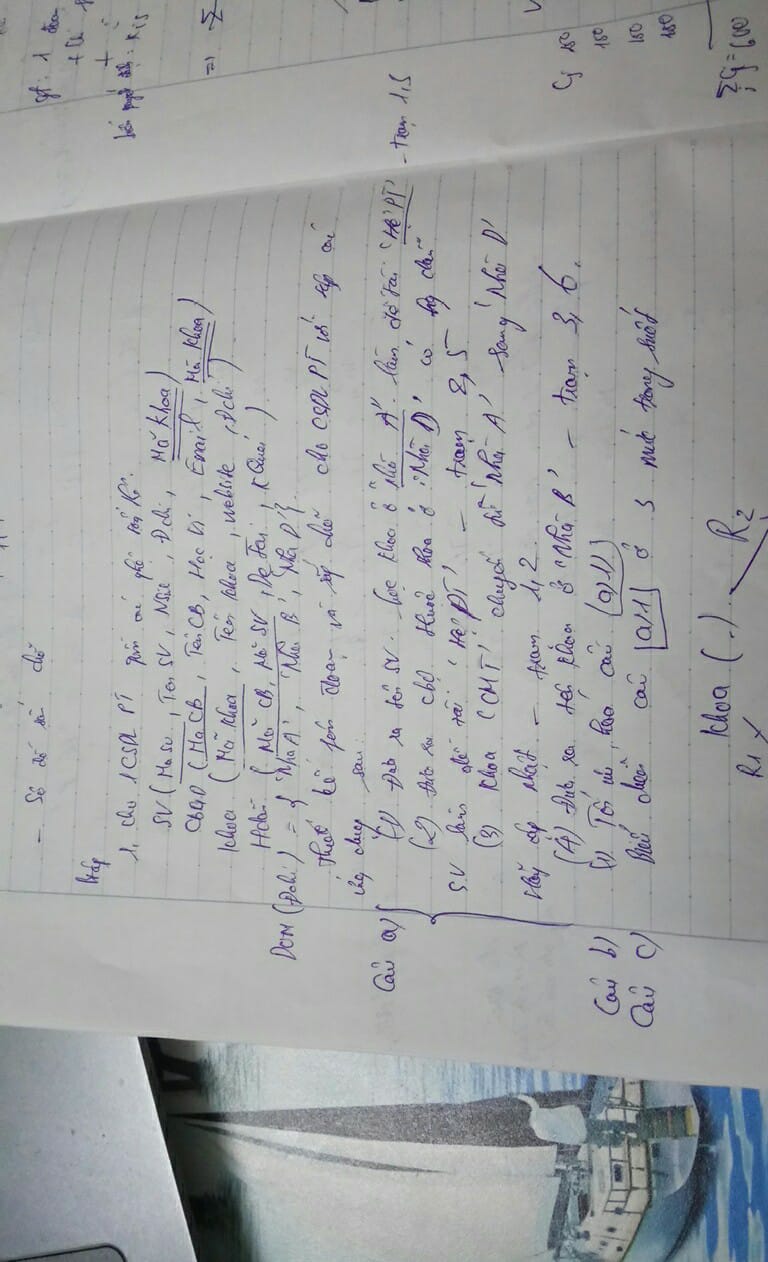 - Sơ đồ sắp chỗ
1, cho 1 CSDL PT gồm các quan hệ
SV (Mã SV, Tên SV, NSinh, Đchi, Mã khoa)
CBGD (Mã CB, Tên CB, Học Vị, Email, Mã khoa)
khoa (Mã khoa, Tên khoa, website, Đchi)
Hdẫn (Mã CB, Mã SV, Đề Tài, KQuả)
DOM (Đchi) = {'Nhà A', 'Nhà B', 'Nhà D'}.
Thiết kế phân đoạn và sắp chỗ cho CSDL PT với tập các
ứng dụng sau:
Câu a) (1) Đưa ra tên SV học khoa ở 'nhà A' làm đề tài 'Hệ PT' - trạm 1,5
(2) Đưa ra cbộ thuộc khoa ở 'Nhà D' có hg dẫn
SV làm đề tài 'Hệ PT' - trạm 2,5
(3) khoa 'CMT' chuyển từ 'Nhà A' sang 'Nhà D'
Hãy cập nhật - trạm 1,2.
(4) Đưa ra tên khoa ở 'Nhà B' - trạm 3, 6.
Câu b) (1) Tối ưu hoá câu (a)1)
Câu c) Biểu diễn câu a)1 ở 3 mức trong suốt
khoa (.)
R1 R2
gt: 1 đoạn
=> Σ
Cj 150
150
150
150
Σ Cj = 600